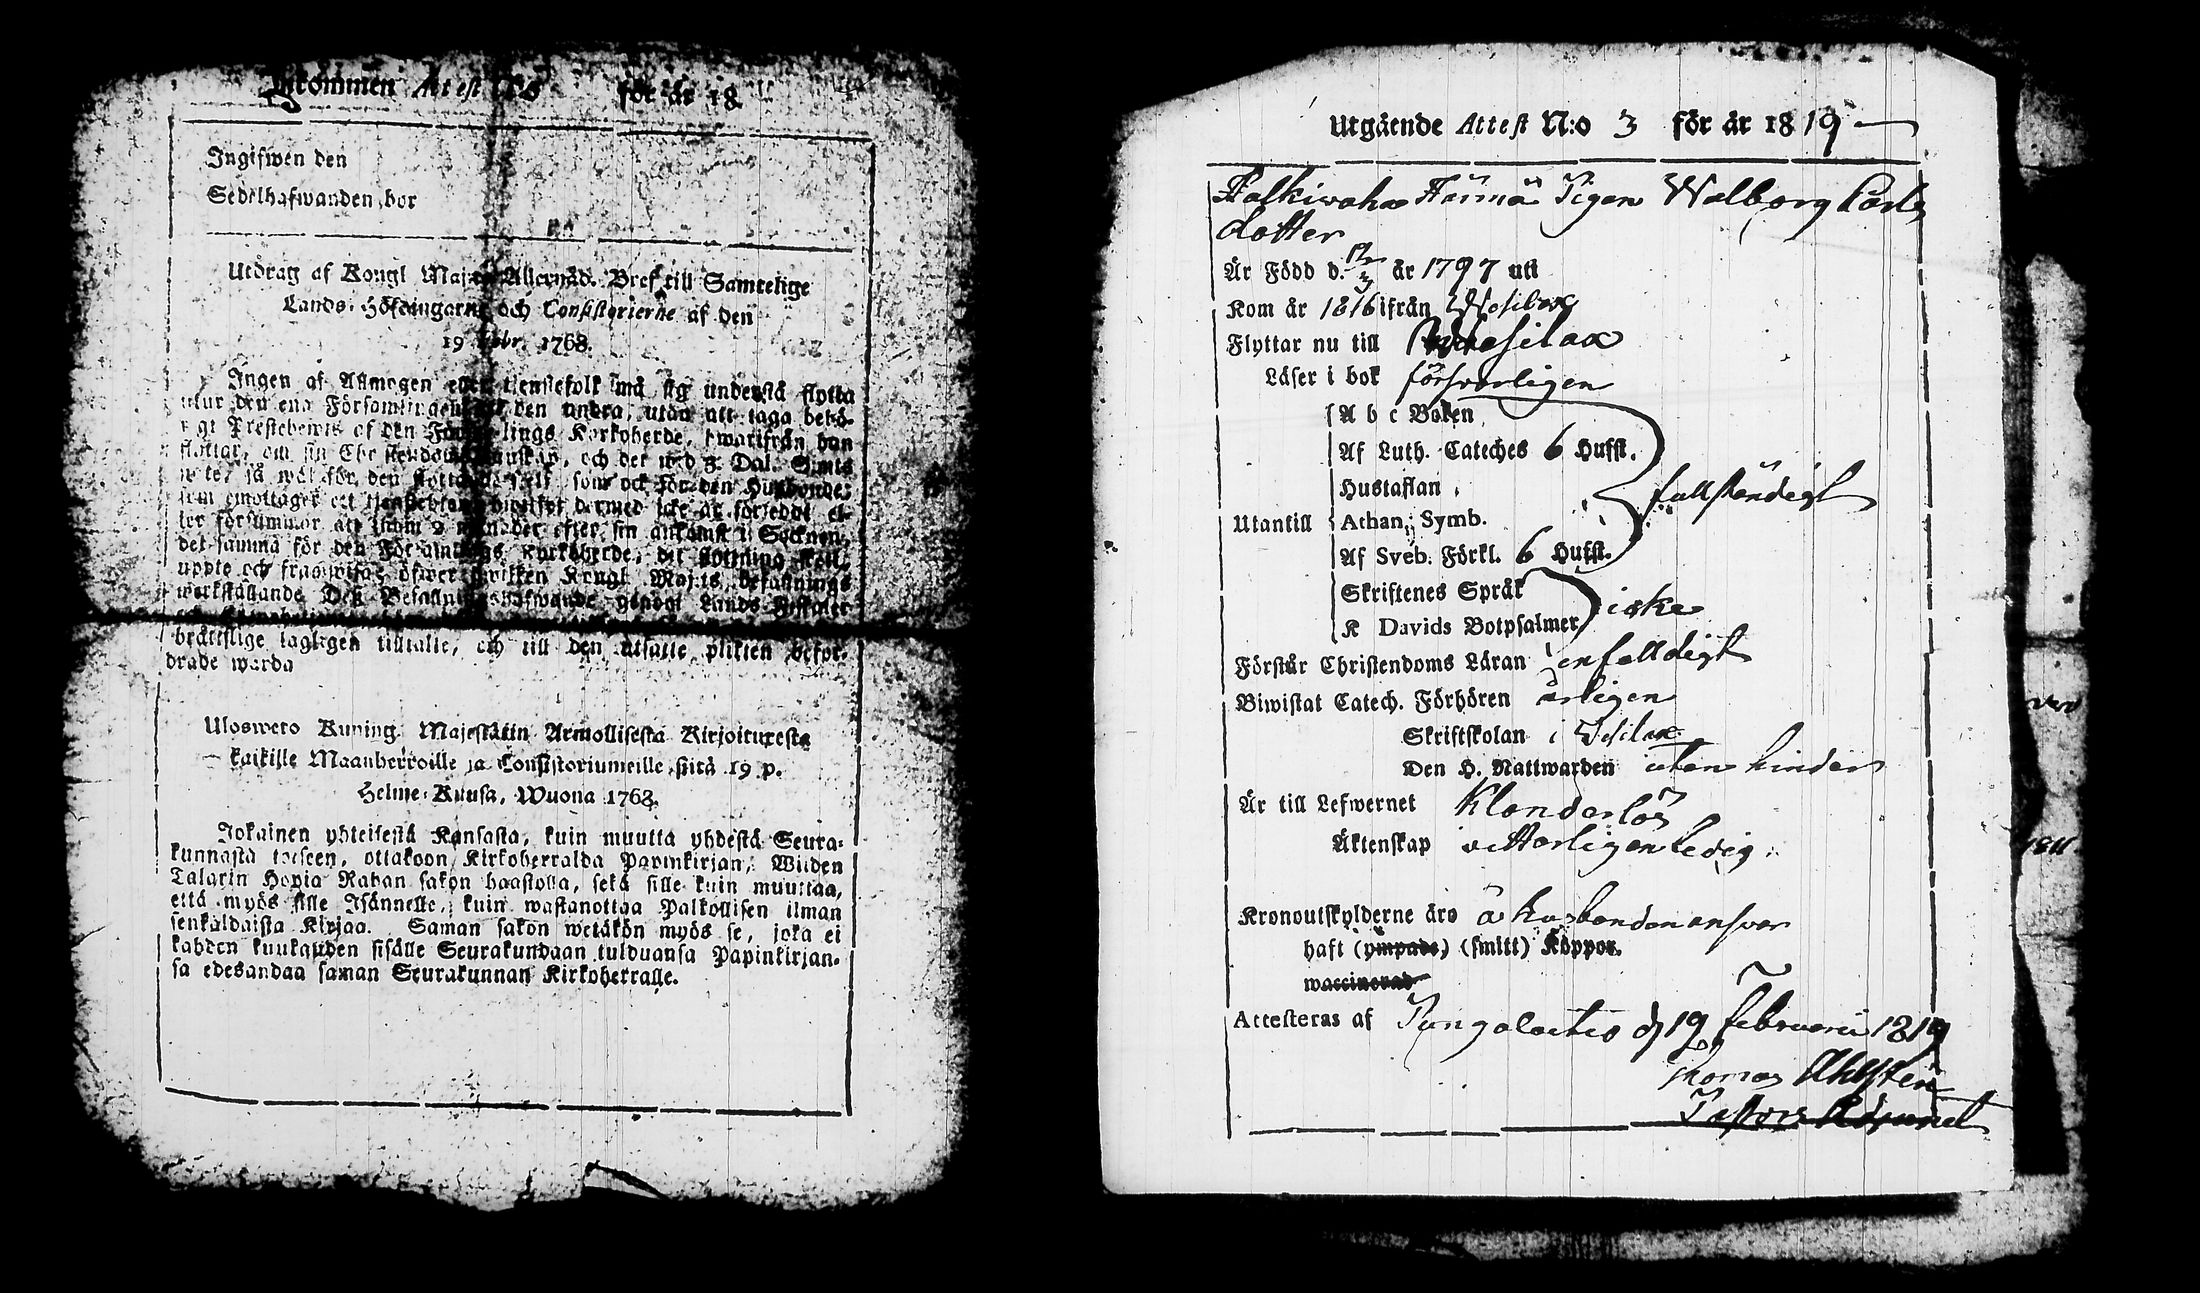 Inkommen Attest No för år 18
Ingifwen den
Sedelhafwanden bor
Utdrag af Kongl Maj:ts Allernåd. Bref till Samtelige
Lands-Höfdingarne och Consistorierne af den
19 Febr. 1768.
Ingen af Allmogen eller tienstefolk må sig understå flytta
utur den ena Församlingen till den andra, utan att taga behö-
rigt Prestebewis af den Församlings Kyrkoherde, hwarifrån han
flyttar, om sin Christendoms kunskap, och det wid 3 Dal. S:mts
wite så wäl för den flyttande sielf som ock för den Husbonde,
som emottager ett tienstehion hwilket dermed icke är försedt el-
ler försummar att inom 2 månader efter sin ankomst i Socknen,
det samma för den Församlings Kyrkoherde, dit flyttning skett,
uppte och framwisa; öfwer hwilken Kongl. Maj:ts befallnings
werkställande Dess Befallningshafwande genom Lands Fiskaler
brättslige lagligen tilltalte, och till den utsatte plikten befor-
drade warda
Ulosweto Kuning. Majestätin Armollisesta Kirjoituxesta
kaikille Maanherroille ja Consistoriumeille, siitä 19 p.
Helme-Kuusa, Wuona 1768.
Jokainen yhteisestä Kansasta, kuin muutta yhdestä Seura-
kunnasta toiseen, ottakoon Kirkoherralda Papinkirjan, Wiiden
Talarin Hopia Rahan sakon haastolla, sekä sille kuin muuttaa,
että myös sille Isännelle, kuin wastanottaa Palkollisen ilman
senkaldaista Kirjaa. Saman sakon wetäkön myös se, joka ei
kahden kuukauden sisälle Seurakundaan tulduansa Papinkirjan-
sa edesandaa saman Seurakunnan Kirkoherralle.
Utgående Attest N:o 3 för år 1819
Halkiwaha Heimä Pigan Walborg Carls
dotter
Är Född d. 17/3 år 1797 uti
Kom år 1816 ifrån Wesilax
Flyttar nu till Wesilax
Läser i bok försvarligen
A b c Boken
Af Luth. Cateches 6 Hufst.
Hustaflan
fullständigt
Utantill Athan. Symb.
Af Sveb. Förkl. 6 Hufst.
Skriftenes Språk
icke
K Davids Botpsalmer
Förstår Christendoms Läran enfaldigt
Biwistat Catech. Förhören årligen
Skriftskolan i Wesilax
Den H. Nattwarden utan hinder
Är till Lefwernet klanderlös
Äktenskap vitterligen ledig
Kronoutskylderne äro å husbondens ansvar
haft (ympade) (smitt) Koppor.
waccinerad
Attesteras af Pungalaitio d 19 Februarii 1819
Thomas Ahlsten
Pastors Adjunct